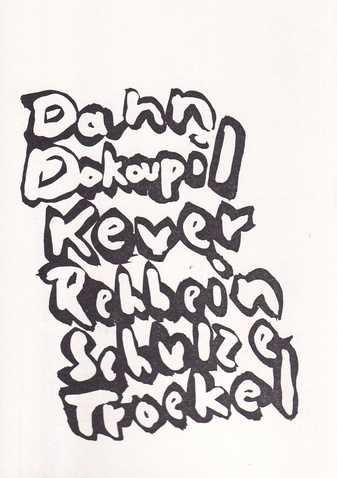 Dahn
Dokoupil
Kever
Rehbein
Schulze
Trockel